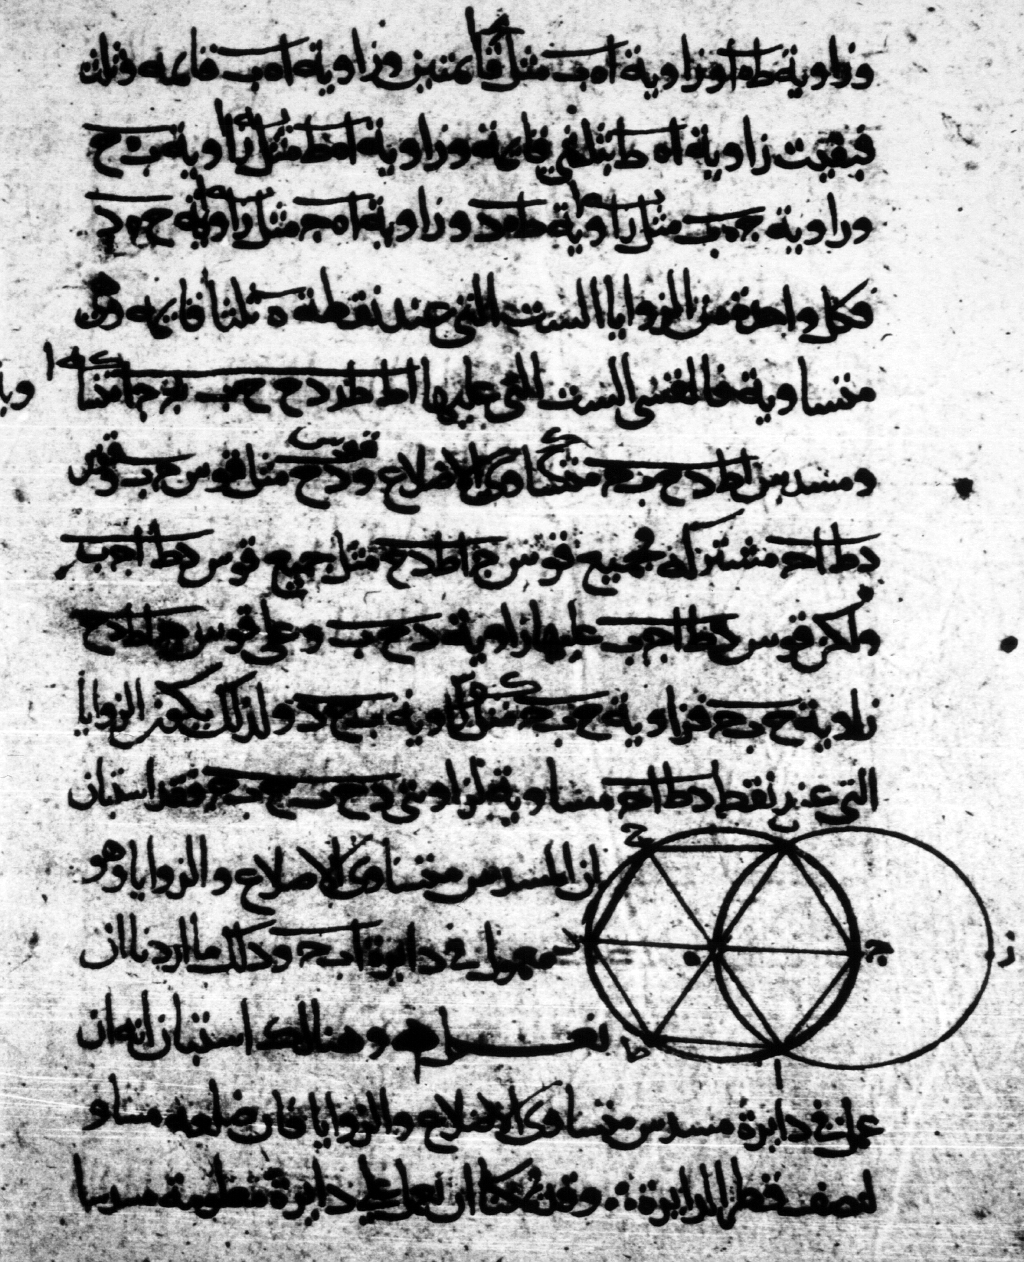 وزاوية طه ا وزاوية اه ب مثل قائمتين وزاوية اه ب قائمه وثلث
فبقيت زاوية اه ط ثلثي قائمة وزاوية اه ط مثل زاوية ب ه ح
وزاوية جه ب مثل زاوية طه د وزاوية اه ج مثل زاوية ح ه د
فكل واحدة من الزوايا الست التي عند نقطة ه ثلثا قائمه وهى
متساوية فالقسى الست التي عليها اط طد دح حب بج جا
ومسدس اط دح ب ج متساوى الاضلاع وقوس دح مثل قوس ج ب وقوس
دط اج مشتركة فجميع قوس ج اط دح مثل جميع قوس دط اج ب
ولكن قوس دط اج ب عليها زاوية دح ب وعلى قوس ج اط دح
زاوية ح ب ج فزاوية ح ب ج مثل زاوية ب ح د وكذلك يكون الزوايا
التي عند نقط دط اج مساوية لزاويتي دح ب ح ب ج فقد استبان
ان المسدس متساوى الاضلاع والزوايا وهو
معمول في دايرة اب ج وذلك ما اردنا ان
نعمل وهنالك استبان انه ان
عمل في دايرة مسدس متساوى الاضلاع والزوايا فان ضلعه مساو
لنصف قطر الدايرة وقد يمكننا ان نعمل على دايرة معلومة مسدسا
ح
د
ه
ج
ز
ط
ا